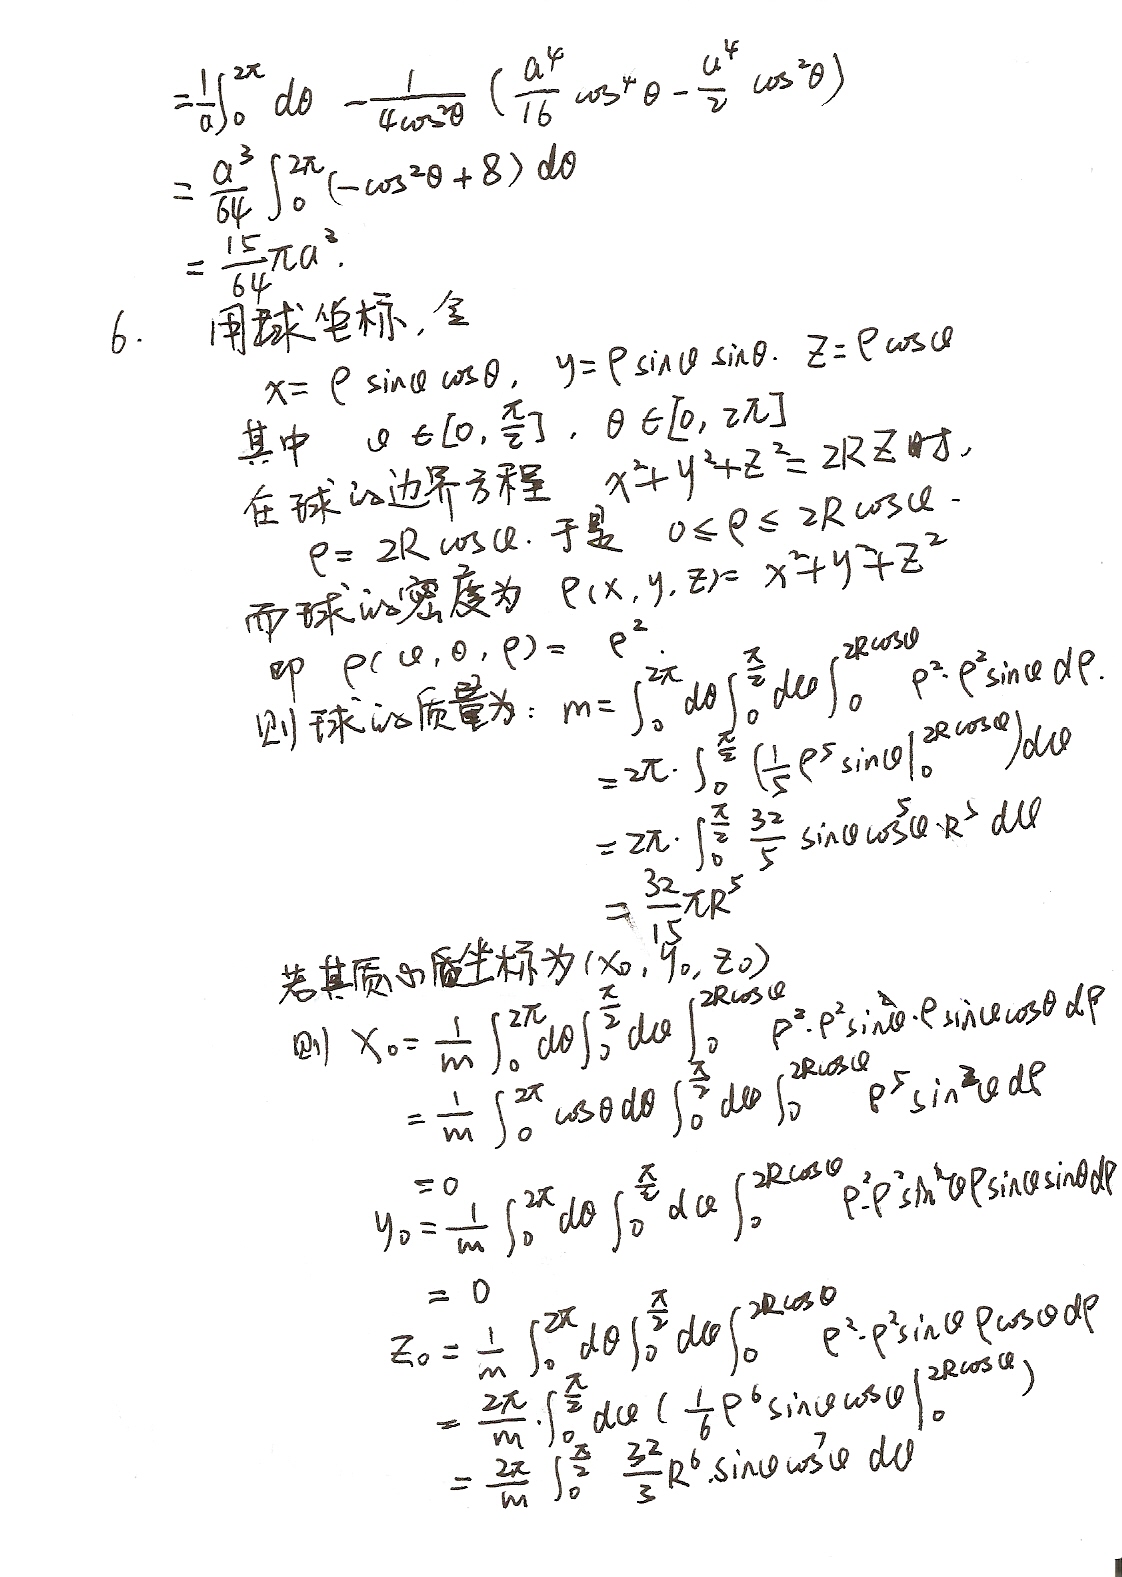 =1/a ∫₀^{2π} dθ −1/(4cos²θ) (a⁴/16 cos⁴θ − a⁴/2 cos²θ)
= a³/64 ∫₀^{2π} (−cos²θ+8) dθ
= 15/64 πa³.
6. 用球坐标,令
x= ρ sinφ cosθ, y= ρ sinφ sinθ. z= ρ cosφ
其中 φ∈[0, π/2], θ∈[0, 2π]
在球的边界方程 x²+y²+z²=2Rz时,
ρ= 2R cosφ. 于是 0≤ρ≤2R cosφ.
而球的密度为 ρ(x, y, z)= x²+y²+z²
即 ρ(φ, θ, ρ)= ρ².
则球的质量为: m= ∫₀^{2π} dθ ∫₀^{π/2} dφ ∫₀^{2Rcosφ} ρ²·ρ² sinφ dρ.
=2π· ∫₀^{π/2} (1/5 ρ⁵ sinφ|₀^{2Rcosφ})dφ
=2π· ∫₀^{π/2} 32/5 sinφ cos⁵φ·R⁵ dφ
= 32/15 πR⁵
若其质心坐标为(x₀, y₀, z₀)
则 x₀= 1/m ∫₀^{2π} dθ ∫₀^{π/2} dφ ∫₀^{2Rcosφ} ρ²·ρ² sinφ·ρ sinφ cosθ dρ
= 1/m ∫₀^{2π} cosθ dθ ∫₀^{π/2} dφ ∫₀^{2Rcosφ} ρ⁵ sin²φ dρ
=0
y₀= 1/m ∫₀^{2π} dθ ∫₀^{π/2} dφ ∫₀^{2Rcosφ} ρ²·ρ² sinφ ρ sinφ sinθ dρ
= 0
z₀= 1/m ∫₀^{2π} dθ ∫₀^{π/2} dφ ∫₀^{2Rcosθ} ρ²·ρ² sinφ ρ cosφ dρ
= 2π/m · ∫₀^{π/2} dφ (1/6 ρ⁶ sinφ cosφ|₀^{2Rcosφ})
= 2π/m ∫₀^{π/2} 32/3 R⁶ · sinφ cos⁷φ dφ